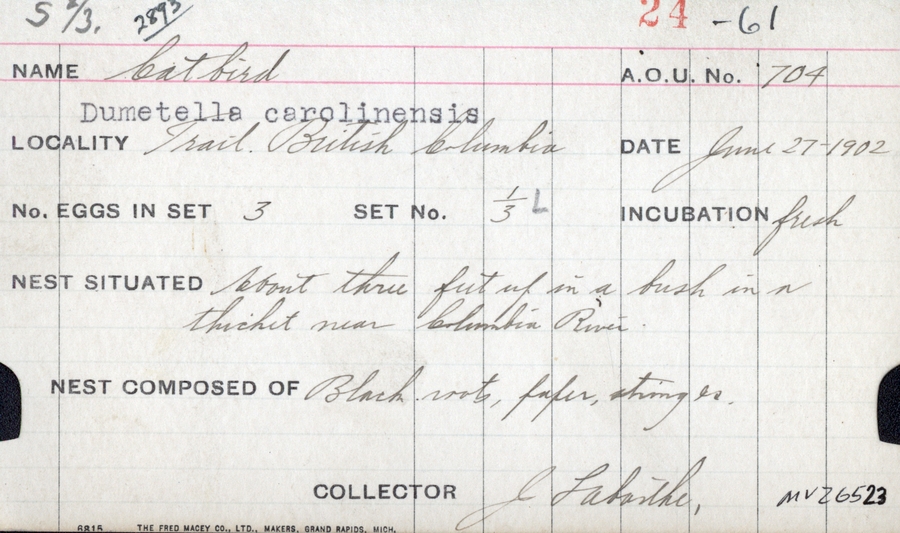 S 2/3. 2893 24 -61
NAME Catbird A.O.U. No. 704
Dumetella carolinensis
LOCALITY Trail. British Columbia DATE June 27-1902
No. EGGS IN SET 3 SET No. 1/3 L INCUBATION fresh
NEST SITUATED About three feet up in a bush in a
thicket near Columbia River.
NEST COMPOSED OF Black roots, paper, strings.
COLLECTOR J. Labarthe,
MVZ6523
6815 THE FRED MACEY CO., LTD., MAKERS, GRAND RAPIDS, MICH.